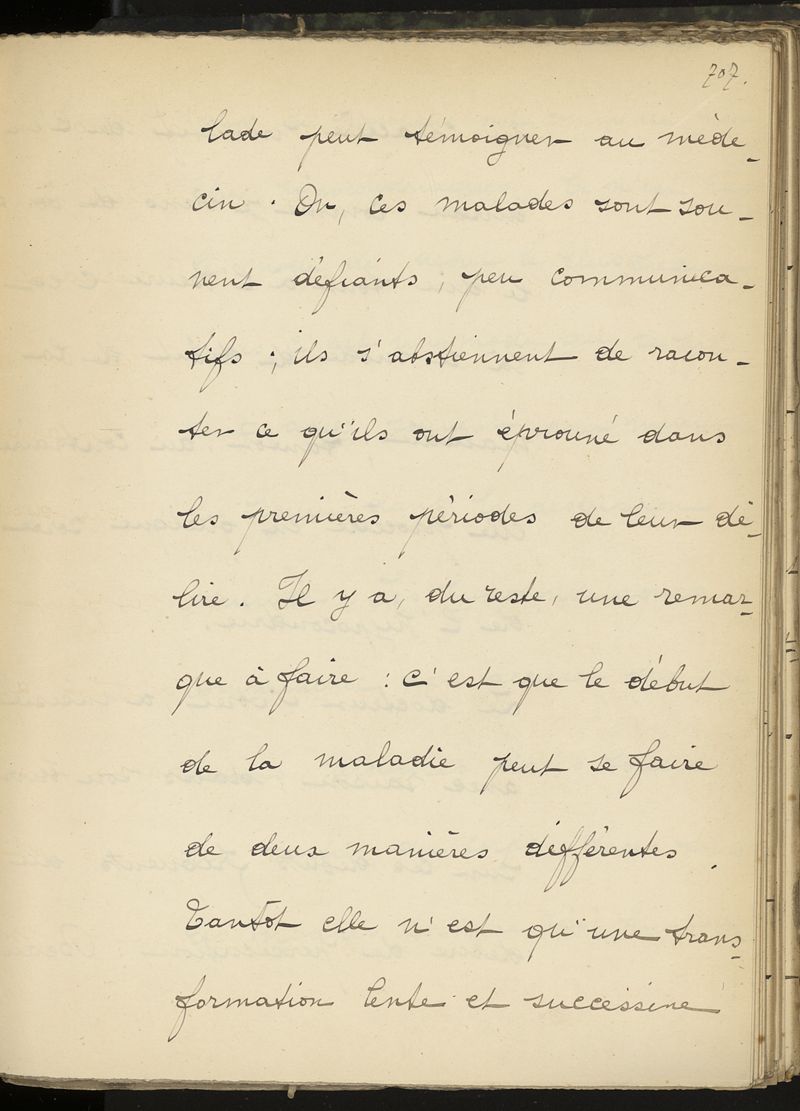 707.
lade peut témoigner au méde-
cin. Or, ces malades sont sou-
vent défiants, peu communica-
tifs ; ils s'abstiennent de racon-
ter ce qu'ils ont éprouvé dans
les premières périodes de leur dé-
lire. Il y a, du reste, une remar-
que à faire : c'est que le début
de la maladie peut se faire
de deux manières différentes.
Tantôt elle n'est qu'une trans-
formation lente et successive